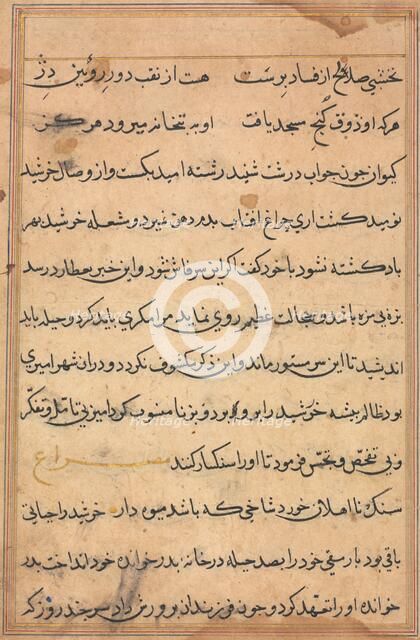 نخشبی صلاح از فساد برست هست از نقب دور رویین دژ
هر که او ذوق کنج مسجد یافت او به بتخانه میرود هرگز
کیوان چون جواب درشت شنید رشته امید بگسست و از وصال خرشید
نومید گشت اری چراغ افتاب بدم دهن نمیرد و شعله خرشید بهر
باد کشته نشود با خود گفت اگر این سر فاش شود و این خبر بعطارد رسد
بزه بی مزه باشد و خجالت عظیم روی نماید مرا مکری باید کرد و حیله باید
اندیشید تا این سر مستور ماند و این ذکر مکشوف نکردد و دران شهر امیری
بود ظالم پیشه خرشید را برو و بزنا منسوب کرد امیر بی تامل و تفکر
و بی تفحص و تجسس فرمود تا او را سنکسار کنند مصراع
سنک نا اهلان خورد شاخی که باشد میوه دار خرشید را حیاتی
باقی بود با رمقی خود را بصد حیله در خانه بدر خوانده خود انداخت بدر
خوانده او را تعهد کرد و چون فرزندان برورش داد سر چند روز که
Heritage
Heritage
Heritage